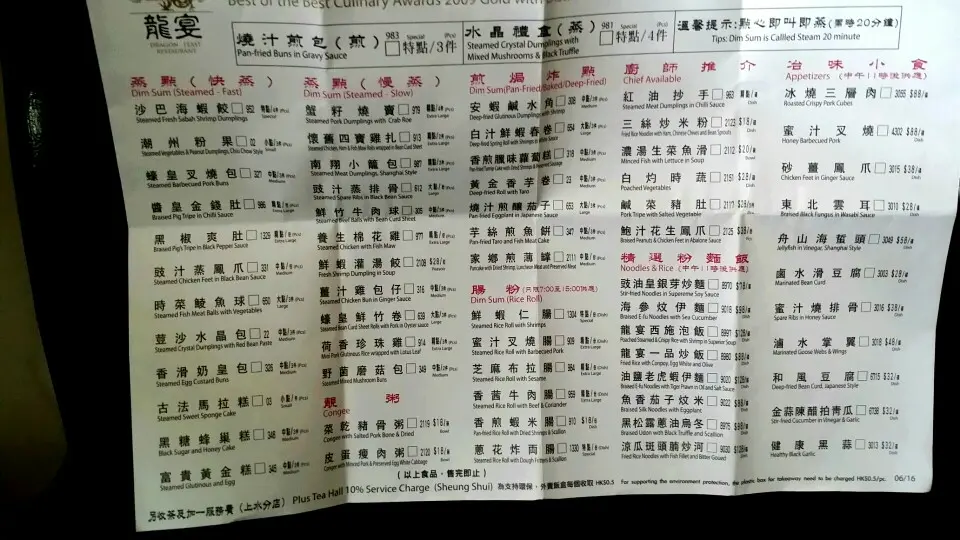 Best of the Best Culinary Awards 2009 Gold with
龍宴
DRAGON FEAST
RESTAURANT
燒汁煎包（煎） 983 特點/3件
Pan-fried Buns in Gravy Sauce
水晶禮盒（蒸） 981 特點/4件
Steamed Crystal Dumplings with
Mixed Mushrooms & Black Truffle
溫馨提示：點心即叫即蒸（需時20分鐘）
Tips: Dim Sum is Callled Steam 20 minute
蒸點（快蒸）
Dim Sum (Steamed - Fast)
沙巴海蝦餃 952
Steamed Fresh Sabah Shrimp Dumplings
潮州粉果 02
Steamed Vegetables & Peanut Dumplings, Chiu Chow Style
蠔皇叉燒包 327
Steamed Barbecued Pork Buns
醬皇金錢肚 986
Braised Pig Tripe in Chilli Sauce
黑椒爽肚 1329
Braised Pig's Tripe in Black Pepper Sauce
豉汁蒸鳳爪 331
Steamed Chicken Feet in Black Bean Sauce
時菜鯪魚球 950
Steamed Fish Meat Balls with Vegetables
荳沙水晶包 22
Steamed Crystal Dumplings with Red Bean Paste
香滑奶皇包 326
Steamed Egg Custard Buns
古法馬拉糕 03
Steamed Sweet Sponge Cake
黑糖蜂巢糕 348
Black Sugar and Honey Cake
富貴黃金糕 345
Steamed Glutinous and Egg
蒸點（慢蒸）
Dim Sum (Steamed - Slow)
蟹籽燒賣 979
Steamed Pork Dumplings with Crab Roe
懷舊四寶雞扎 913
南翔小籠包 987
Steamed Meat Dumplings, Shanghai Style
豉汁蒸排骨 912
Steamed Spare Ribs in Black Bean Sauce
鮮竹牛肉球 305
Steamed Beef Balls with Bean Curd Sheet
養生棉花雞 977
Steamed Chicken with Fish Maw
鮮蝦灌湯餃 2108 $28
Fresh Shrimp Dumpling in Soup
薑汁雞包仔 316
Steamed Chicken Bun in Ginger Sauce
蠔皇鮮竹卷 639
Steamed Bean Curd Sheet Rolls with Pork in Oyster sauce
荷香珍珠雞 914
Mini Pork Glutinous Rice wrapped with Lotus Leaf
野菌磨菇包 349
Steamed Mixed Mushroom Buns
靚粥
Congee
菜乾豬骨粥 2119 $18
Congee with Salted Pork Bone & Dried
皮蛋瘦肉粥 2120 $18
煎焗炸點
Dim Sum(Pan-Fried/Baked/Deep-Fried)
安蝦鹹水角 308
Deep-fried Glutinous Dumplings with Shrimp
白汁鮮蝦春卷 654
香煎臘味蘿蔔糕 318
黃金香芋卷 23
Deep-fried Roll with Taro
燒汁煎釀茄子 653
Pan-fried Eggplant in Japanese Sauce
芋絲煎魚餅 347
Pan-fried Taro and Fish Meat Cake
家鄉煎薄罉 2111
腸粉（只限7:00至15:00供應）
Dim Sum (Rice Roll)
鮮蝦仁腸 1304
Steamed Rice Roll with Shrimps
蜜汁叉燒腸 909
Steamed Rice Roll with Barbecued Pork
芝麻布拉腸 964
Steamed Rice Roll with Sesame
香茜牛肉腸 959
Steamed Rice Roll with Beef & Coriander
香煎蝦米腸 910
Pan-fried Rice Roll with Dried Shrimps & Scallion
蔥花炸両腸 1330
Steamed Rice Roll with Dough Fritters & Scallion
廚師推介
Chief Available
紅油抄手 963
Steamed Meat Dumplings in Chilli Sauce
三絲炒米粉 2123 $18
Fried Rice Noodle with Ham, Chinese Chives and Bean Sprouts
濃湯生菜魚滑 2112 $20
Minced Fish with Lettuce in Soup
白灼時蔬 2151 $28
Poached Vegetables
鹹菜豬肚 2117 $28
Pork Tripe with Salted Vegetable
鮑汁花生鳳爪 2125 $28
Braised Peanuts & Chicken Feet in Abalone Sauce
精選粉麵飯
Noodles & Rice（中午11時後供應）
豉油皇銀芽炒麵 8970
Stir-fried Noodles in Supreme Soy Sauce
海參炆伊麵 9018
Braised E-fu Noodles with Sea Cucumber
龍宴西施泡飯 8991
Poached Steamed & Crispy Rice with Shrimp in Superior Soup
龍宴一品炒飯 8980
Fried Rice with Conpoy, Egg White and Olive
油鹽老虎蝦伊麵 9020
Braised E-fu Noodles with Tiger Prawn in Oil and Salt Sauce
魚香茄子炆米 9022
Braised Silk Noodles with Eggplant
黑松露蔥油烏冬
Braised Udon with Black Truffle and Scallion
涼瓜斑頭腩炒河 9030
Fried Rice Noodles with Fish Fillet and Bitter Gourd
冶味小食
Appetizers（中午11時後供應）
冰燒三層肉 3055 $68
Roasted Crispy Pork Cubes
蜜汁叉燒 4302 $88
Honey Barbecued Pork
砂薑鳳爪 3015 $38
Chicken Feet in Ginger Sauce
東北雲耳 3010 $28
Braised Black Fungus in Wasabi Sauce
舟山海蜇頭 3049 $58
Jellyfish in Vinegar, Shanghai Style
鹵水滑豆腐 3003 $28
Marinated Bean Curd
蜜汁燒排骨 3016 $38
Spare Ribs in Honey Sauce
滷水掌翼 3018 $48
Marinated Goose Webs & Wings
和風豆腐 6715 $32
Deep-fried Bean Curd, Japanese Style
金蒜陳醋拍青瓜 6738 $32
Stir-fried Cucumber in Vinegar & Garlic
健康黑蒜 3013 $32
Healthy Black Garlic
（以上食品，售完即止）
另收茶及加一服務費（上水分店） Plus Tea Hall 10% Service Charge (Sheung Shui) 為支持環保，外賣飯盒每個收取 HK$0.5 For supporting the environment protection, the plastic box for takeaway need to be charged HK$0.5/pc. 06/16